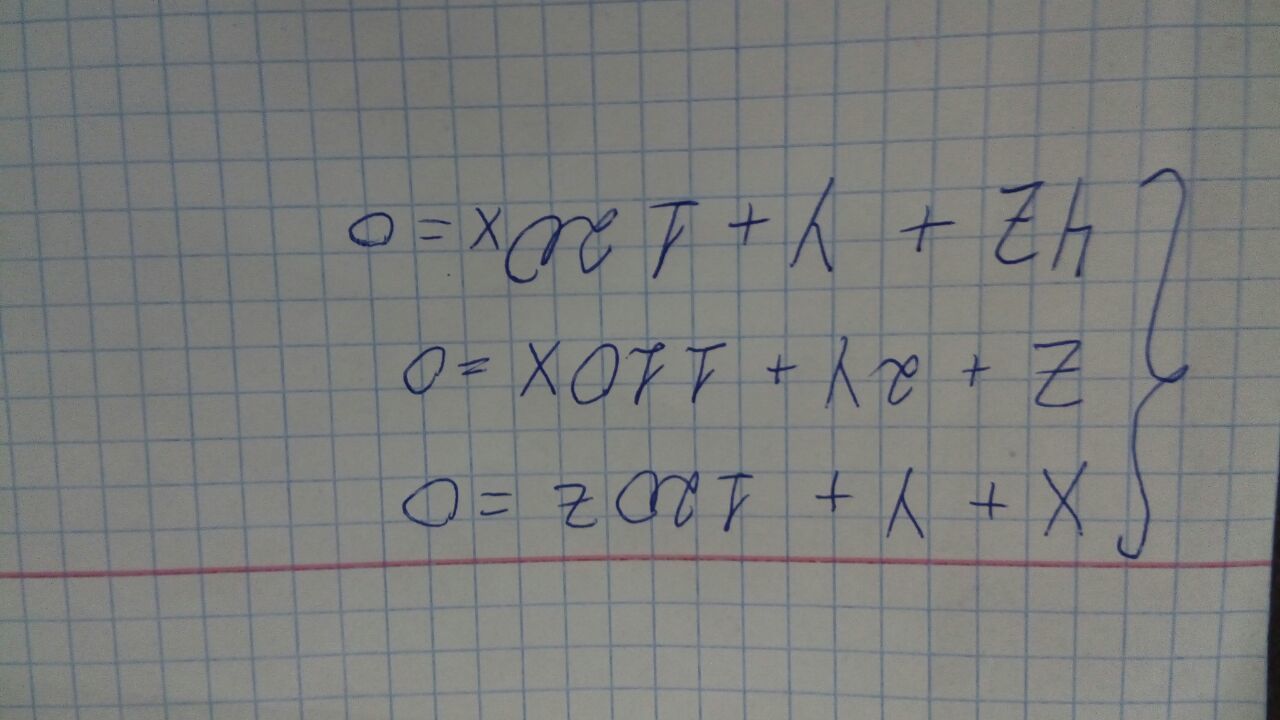 X + Y + 120z = 0
Z + 2Y + 110X = 0
4Z + Y + 120x = 0